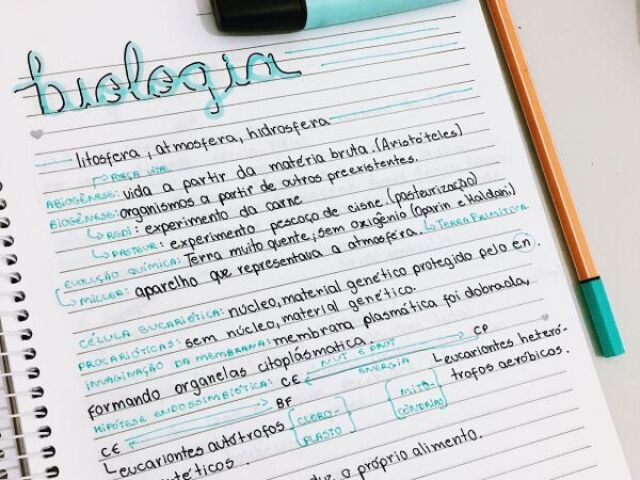 biologia
litosfera, atmosfera, hidrosfera
↱ FORÇA VITAL
ABIOGÊNESE: vida a partir da matéria bruta. (Aristóteles)
BIOGÊNESE: organismos a partir de outros preexistentes.
↳ REDI: experimento da carne
↳ PASTEUR: experimento pescoço de cisne. (pasteurização)
EVOLUÇÃO QUÍMICA: Terra muito quente; sem oxigênio (Oparin e Haldani)
↳ MILLER: aparelho que representava a atmosféra. ↳ TERRA PRIMITIVA
CÉLULA EUCARIÓTICA: núcleo, material genético protegido pelo en.
PROCARIÓTICAS: sem núcleo, material genético.
INVAGINAÇÃO DA MEMBRANA: membrana plasmática foi dobrada,
formando organelas citoplásmatica.
HIPÓTESE ENDOSSIMBIÓTICA: CE NUT E PROT CP
ENERGIA
CE BF
Leucariontes heteró-
trofos aeróbicos.
MITO-
CÔNDRIAS
Leucariontes autótrofos
CLORO-
PLASTO
o próprio alimento.